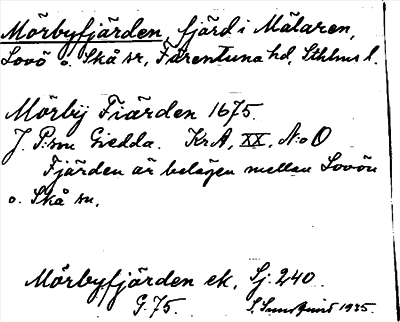 Mörbyfjärden, fjärd i Mälaren,
Lovö o. Skå sr, Färentuna hd, Sthlms l.
Mörby Fiärden 1675.
J. P:son Giedda. KrA, XX, N:o O
Fjärden är belägen mellan Lovön
o. Skå sn.
Mörbyfjärden ek. Sj: 240.
G. 75. S. Sundquist 1935.